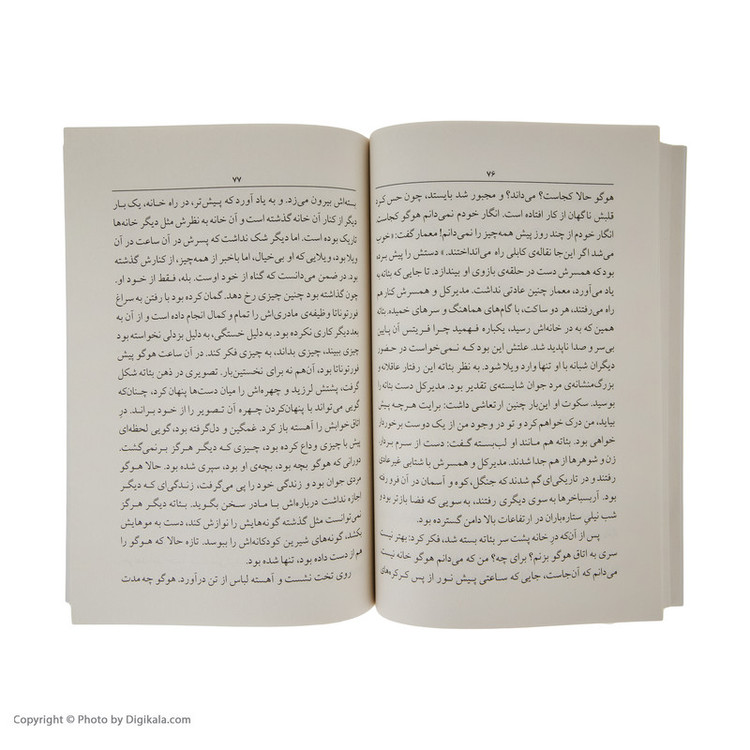 ۷۶
هوگو حالا کجاست؟ می‌داند؟ و مجبور شد بایستد، چون حس کرد
قلبش ناگهان از کار افتاده است. انگار خودم نمی‌دانم هوگو کجاست
انگار خودم از چند روز پیش همه‌چیز را نمی‌دانم! معمار گفت: «خوب
می‌شد اگر این‌جا نقاله‌ی کابلی راه می‌انداختند.» دستش را پیش برده
بود که همسرش دست در حلقه‌ی بازوی او بیندازد. تا جایی که بئاته به
یاد می‌آورد، معمار چنین عادتی نداشت. مدیرکل و همسرش کنار هم
راه می‌رفتند، هر دو ساکت، با گام‌های هماهنگ و سرهای خمیده. بئاته
همین که به در خانه‌اش رسید، یکباره فهمید چرا فریتس آن پایین
بی‌سر و صدا ناپدید شد. علتش این بود که نمی‌خواست در حضور
دیگران شبانه با او تنها وارد ویلا شود. به نظر بئاته این رفتار عاقلانه و
بزرگ‌منشانه‌ی مرد جوان شایسته‌ی تقدیر بود. مدیرکل دست بئاته را
بوسید. سکوت او این‌بار چنین ارتعاشی داشت: برایت هرچه پیش
بیاید، من درک خواهم کرد و تو در وجود من از یک دوست برخوردار
خواهی بود. بئاته هم مانند او لب‌بسته گفت: دست از سرم بردار.
زن و شوهرها از هم جدا شدند. مدیرکل و همسرش با شتابی غیرعادی
رفتند و در تاریکی‌ای گم شدند که جنگل، کوه و آسمان در آن فرو رفته
بود. آربسباخرها به سوی دیگری رفتند، به سویی که فضا بازتر بود و
شب نیلیِ ستاره‌باران در ارتفاعات بالا دامن گسترده بود.
پس از آن‌که درِ خانه پشت سر بئاته بسته شد، فکر کرد: بهتر نیست
سری به اتاق هوگو بزنم؟ برای چه؟ من که می‌دانم هوگو خانه نیست
می‌دانم که آن‌جاست، جایی که ساعتی پیش نور از پس کرکره‌های
۷۷
بسته‌اش بیرون می‌زد. و به یاد آورد که پیش‌تر، در راه خانه، یک بار
دیگر از کنار آن خانه گذشته است و آن خانه به نظرش مثل دیگر خانه‌ها
تاریک بوده است. اما دیگر شک نداشت که پسرش در آن ساعت در آن
ویلا بود، ویلایی که او بی‌خیال، اما باخبر از همه‌چیز، از کنارش گذشته
بود. در ضمن می‌دانست که گناه از خود اوست. بله، فقط از خود او.
چون گذاشته بود چنین چیزی رخ دهد. گمان کرده بود با رفتن به سراغ
فورتوناتا وظیفه‌ی مادری‌اش را تمام و کمال انجام داده است و از آن به
بعد دیگر کاری نکرده بود. به دلیل خستگی، به دلیل بزدلی نخواسته بود
چیزی ببیند، چیزی بداند، به چیزی فکر کند. در آن ساعت هوگو پیش
فورتوناتا بود، آن‌هم نه برای نخستین‌بار. تصویری در ذهن بئاته شکل
گرفت، پشتش لرزید و چهره‌اش را میان دست‌ها پنهان کرد، چنان‌که
گویی می‌تواند با پنهان‌کردن چهره آن تصویر را از خود براند. درِ
اتاق‌خوابش را آهسته باز کرد. غمگین و دل‌گرفته بود، گویی لحظه‌ای
پیش با چیزی وداع کرده بود، چیزی که دیگر هرگز برنمی‌گشت.
دورانی که هوگو بچه بود، بچه‌ی او بود، سپری شده بود. حالا هوگو
مردی جوان بود و زندگی خود را پی می‌گرفت، زندگی‌ای که دیگر
اجازه نداشت درباره‌اش با مادر سخن بگوید. بئاته دیگر هرگز
نمی‌توانست مثل گذشته گونه‌هایش را نوازش کند، دست به موهایش
بکشد، گونه‌های شیرین کودکانه‌اش را ببوسد. تازه حالا که هوگو را
هم از دست داده بود، تنها شده بود.
روی تخت نشست و آهسته لباس از تن درآورد. هوگو چه مدت
Copyright © Photo by Digikala.com